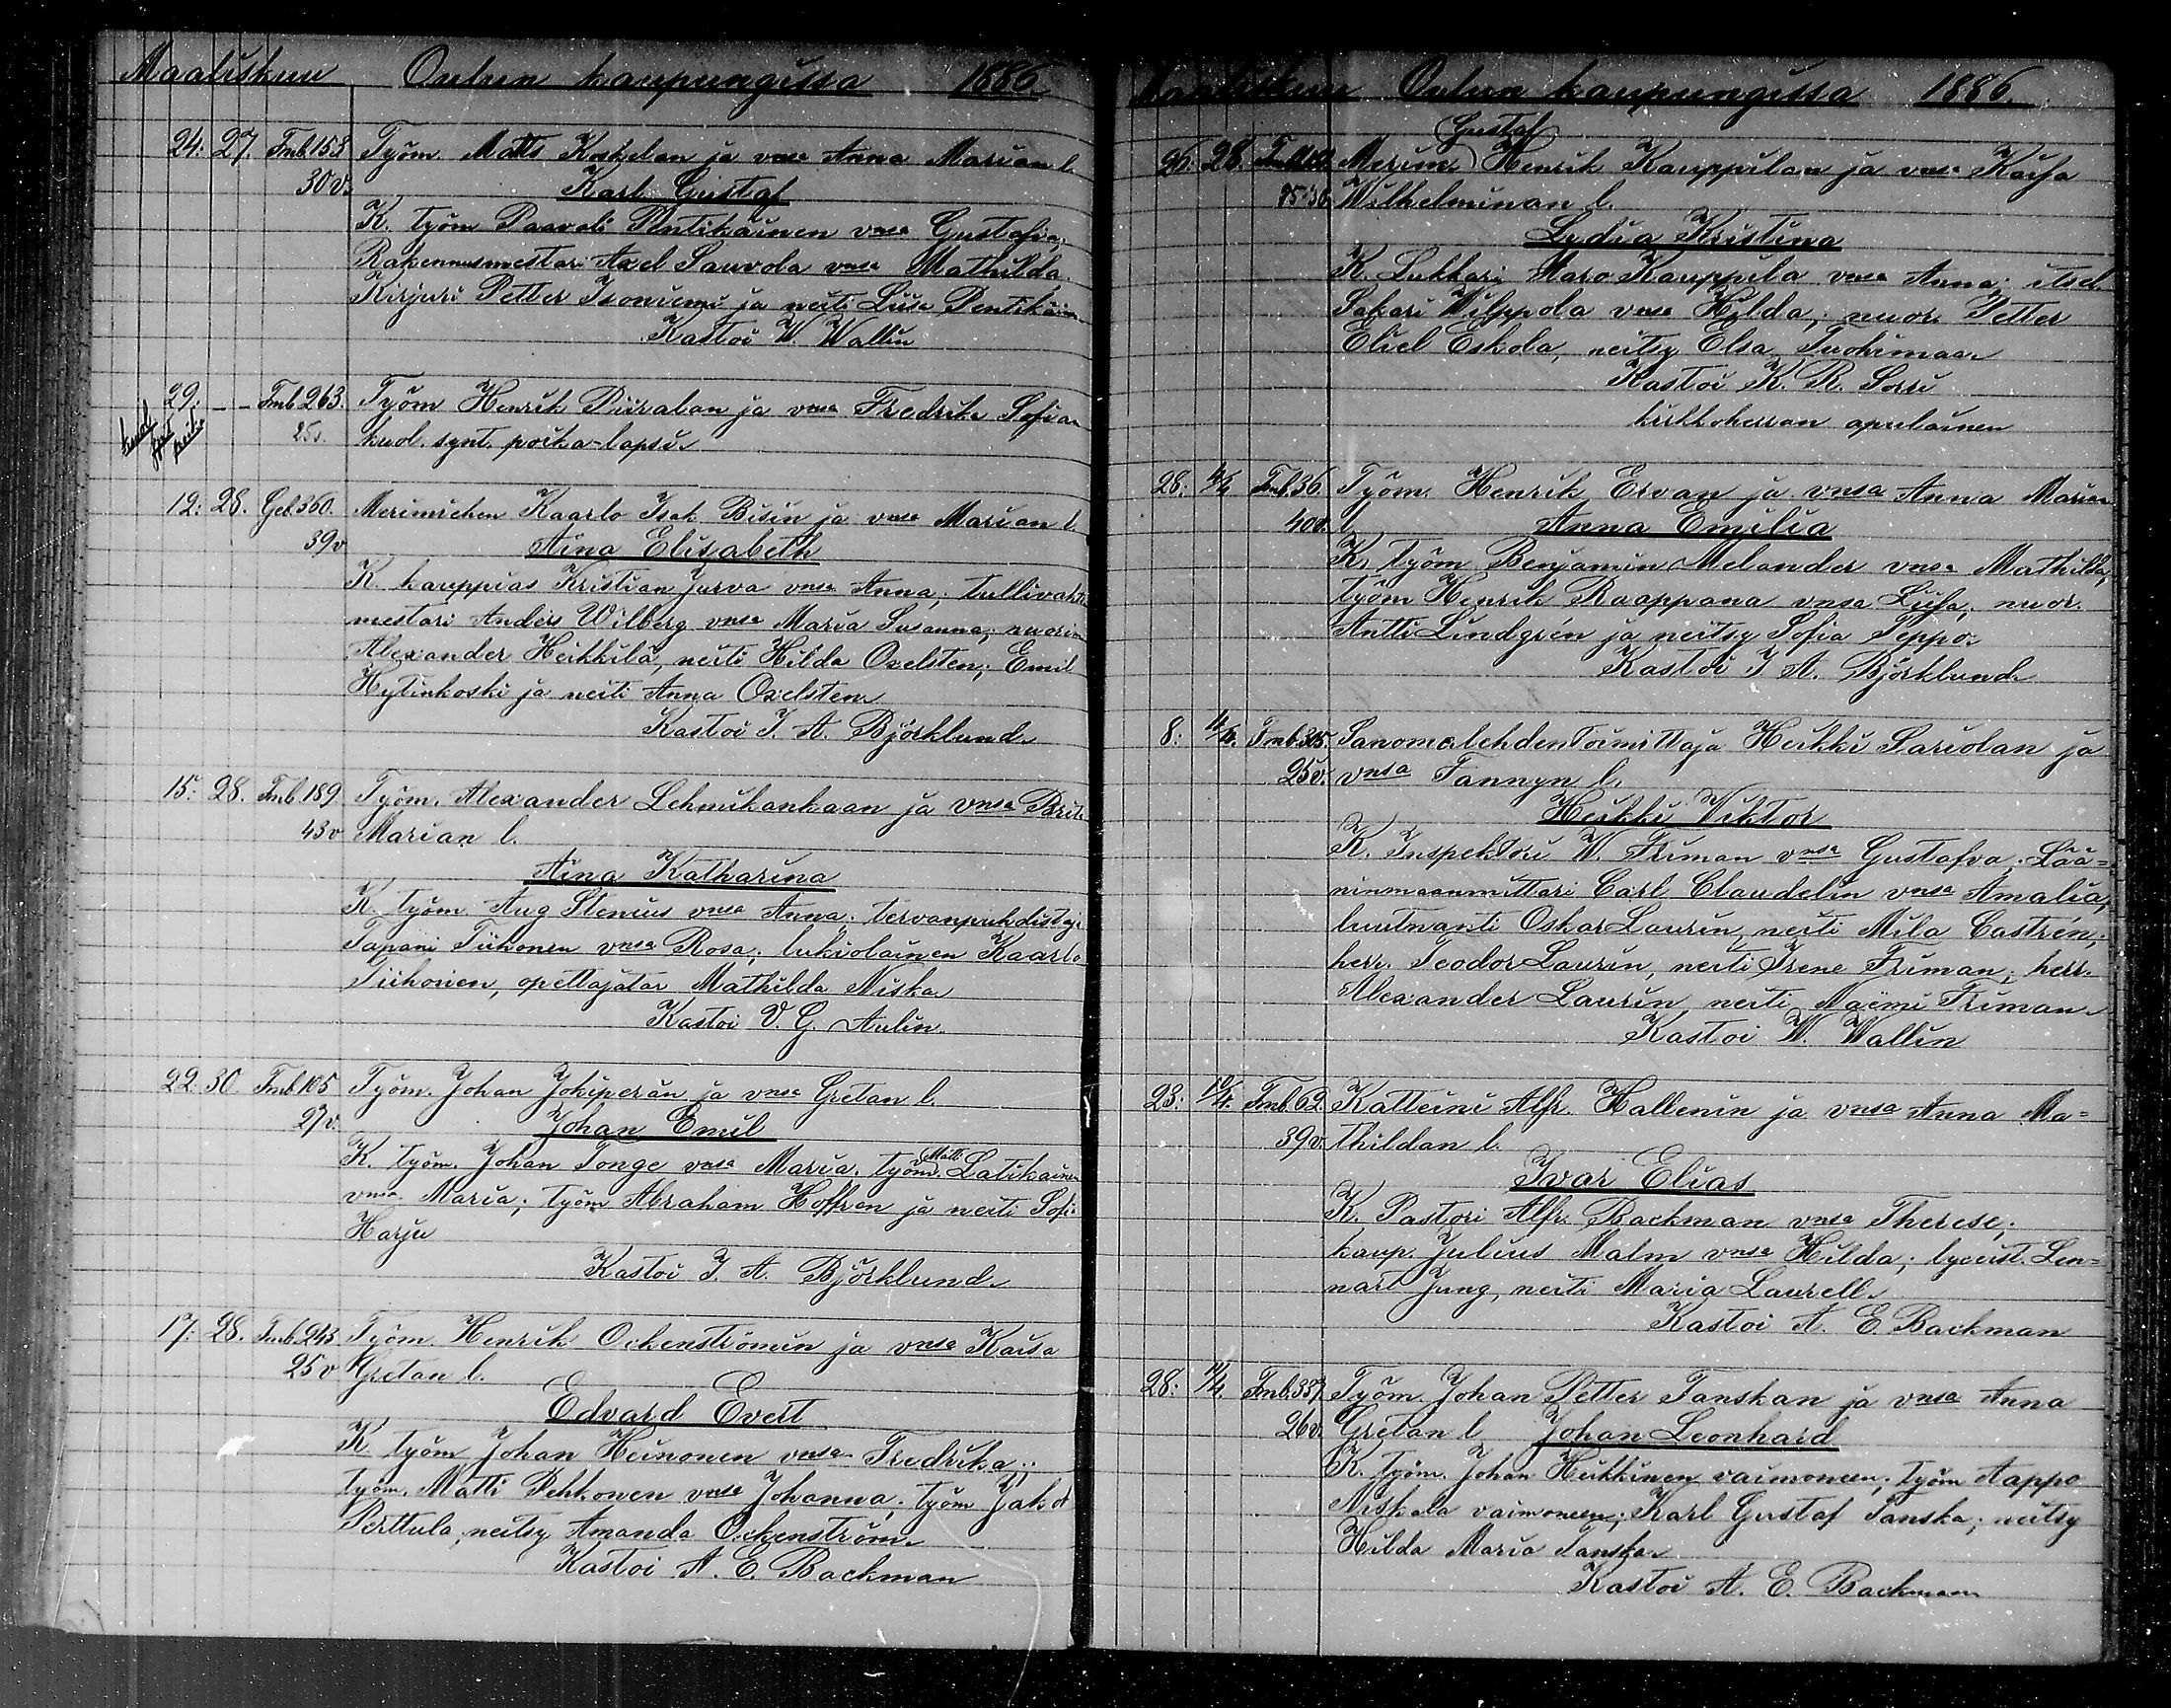 Maaliskuu Oulun kaupungissa 1886
24: 27. Fmb. 153 Työm. Matts Koskelan ja vmsa Anna Marian l.
30 v. Karl Gustaf
K. työm Paavali Pentikäinen vmsa Gustafia,
Rakennusmestari Axel Sauvola vmsa Mathilda
Kirjuri Petter Isoniemi ja neiti Liisa Pentikäin
Kastoi W. Wallin
29. - - Fmb 263. Työm Henrik Piiralan ja vmsa Fredrika Sofian
25 v. kuol. synt. poika-lapsi
12: 28. Geb. 360. Merimiehen Kaarlo Isak Bisin ja vmsa Marian l.
39 v Aina Elisabeth
K. kauppias Kristian Jurva vmsa Anna; tullivahti
mestari Anders Wilberg vmsa Maria Susanna; nuorim
Alexander Heikkilä, neiti Hilda Oxelsten; Emil
Hytinkoski ja neiti Anna Oxelsten
Kastoi J. A. Björklund
15: 28. Fmb. 189 Työm. Alexander Lehmikankaan ja vmsa Brita
43 v Marian l.
Aina Katharina
K. työm. Aug Stenius vmsa Anna; tervanpuhdistaja
Tapani Tiihonen vmsa Rosa; lukiolainen Kaarlo
Tiihonen, opettajatar Mathilda Niska
Kastoi V. G. Aulin
22. 30. Fmb. 105 Työm. Johan Jokiperän ja vmsa Gretan l.
27 v. Johan Emil
K. työm. Johan Tonge vmsa Maria, työm Matti Latikainen
vmsa Maria; työm Abraham Hoffren ja neiti Sofi
Harju
Kastoi J. A. Björklund
17: 28. Fmb. 243 Työm. Henrik Ockenströmin ja vmsa Kaisa
25 v Gretan l.
Edvard Evert
K. työm Johan Heinonen vmsa Fredrika;
työm. Matti Pehkonen vmsa Johanna; työm Jakob
Perttula, neitsy Amanda Ockenström
Kastoi A. E. Backman
Maaliskuu Oulun kaupungissa 1886.
Gustaf
26: 28. Merim. Henrik Kauppilan ja vmsa Kaisa
Wilhelminan l.
Lydia Kristina
K. Lukkari Maro Kauppila vmsa Anna; itsel.
Sakari Wilppola vmsa Hilda; nuor. Petter
Eliel Eskola, neitsy Elsa Tuohimaa
Kastoi K. R. Sorri
kirkkoherran apulainen
28: 4/4 Fmb. 36 Työm. Henrik Ervan ja vmsa Anna Marian
40 v. l Anna Emilia
K. työm Benjamin Melander vmsa Mathilda,
työm Henrik Raappana vmsa Liisa; nuor.
Antti Lindgrén ja neitsy Sofia Seppo
Kastoi J A. Björklund
8: 4/4. Fmb. 305. Sanomalehden Toimittaja Heikki Sariolan ja
25 v. vmsa Fannyn l.
Heikki Viktor
K. Inspektori W. Friman vmsa Gustafva; Lää-
ninmaanmittari Carl Claudelin vmsa Amalia,
luutnanti Oskar Laurin, neiti Mila Castrén;
herr. Teodor Laurin, neiti Irene Friman; herr.
Alexander Laurin, neiti Naëmi Friman
Kastoi W. Wallin
23: 10/4. Fmb. 62. Katteini Alfr. Hallenin ja vmsa Anna Ma-
39 v. thildan l.
Ivar Elias
K. Pastori Alfr. Backman vmsa Therese;
kaup. Julius Malm vmsa Hilda; lyceist. Len-
nart Jung, neiti Maria Laurell
Kastoi A. E. Backman
28: 11/4. Fmb. 357. Työm Johan Petter Tanskan ja vmsa Anna
26 v. Gretan l Johan Leonhard
K. työm. Johan Heikkinen vaimoneen; työm Aappo
Niskala vaimoneen; Karl Gustaf Tanska; neitsy
Hilda Maria Tanska
Kastoi A. E. Backman